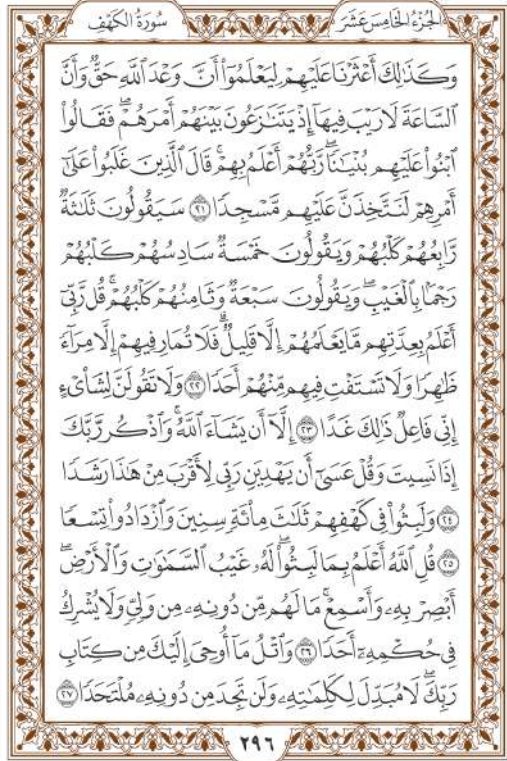 الجُزْءُ الخَامِسَ عَشَرَ
سُورَةُ الكَهْفِ
وَكَذَٰلِكَ أَعْثَرْنَا عَلَيْهِمْ لِيَعْلَمُوٓاْ أَنَّ وَعْدَ ٱللَّهِ حَقٌّ وَأَنَّ
ٱلسَّاعَةَ لَا رَيْبَ فِيهَآ إِذْ يَتَنَٰزَعُونَ بَيْنَهُمْ أَمْرَهُمْۖ فَقَالُواْ
ٱبْنُواْ عَلَيْهِم بُنْيَٰنًاۖ رَّبُّهُمْ أَعْلَمُ بِهِمْۚ قَالَ ٱلَّذِينَ غَلَبُواْ عَلَىٰٓ
أَمْرِهِمْ لَنَتَّخِذَنَّ عَلَيْهِم مَّسْجِدًا ٢١ سَيَقُولُونَ ثَلَٰثَةٌ
رَّابِعُهُمْ كَلْبُهُمْ وَيَقُولُونَ خَمْسَةٌ سَادِسُهُمْ كَلْبُهُمْ
رَجْمًۢا بِٱلْغَيْبِۖ وَيَقُولُونَ سَبْعَةٌ وَثَامِنُهُمْ كَلْبُهُمْۚ قُل رَّبِّىٓ
أَعْلَمُ بِعِدَّتِهِم مَّا يَعْلَمُهُمْ إِلَّا قَلِيلٌۗ فَلَا تُمَارِ فِيهِمْ إِلَّا مِرَآءً
ظَٰهِرًا وَلَا تَسْتَفْتِ فِيهِم مِّنْهُمْ أَحَدًا ٢٢ وَلَا تَقُولَنَّ لِشَا۟ىْءٍ
إِنِّى فَاعِلٌ ذَٰلِكَ غَدًا ٢٣ إِلَّآ أَن يَشَآءَ ٱللَّهُۚ وَٱذْكُر رَّبَّكَ
إِذَا نَسِيتَ وَقُلْ عَسَىٰٓ أَن يَهْدِيَنِ رَبِّى لِأَقْرَبَ مِنْ هَٰذَا رَشَدًا
٢٤ وَلَبِثُواْ فِى كَهْفِهِمْ ثَلَٰثَ مِا۟ئَةٍ سِنِينَ وَٱزْدَادُواْ تِسْعًا
٢٥ قُلِ ٱللَّهُ أَعْلَمُ بِمَا لَبِثُواْۖ لَهُۥ غَيْبُ ٱلسَّمَٰوَٰتِ وَٱلْأَرْضِۖ
أَبْصِرْ بِهِۦ وَأَسْمِعْۚ مَا لَهُم مِّن دُونِهِۦ مِن وَلِىٍّ وَلَا يُشْرِكُ
فِى حُكْمِهِۦٓ أَحَدًا ٢٦ وَٱتْلُ مَآ أُوحِىَ إِلَيْكَ مِن كِتَابِ
رَبِّكَۖ لَا مُبَدِّلَ لِكَلِمَٰتِهِۦ وَلَن تَجِدَ مِن دُونِهِۦ مُلْتَحَدًا ٢٧
٢٩٦